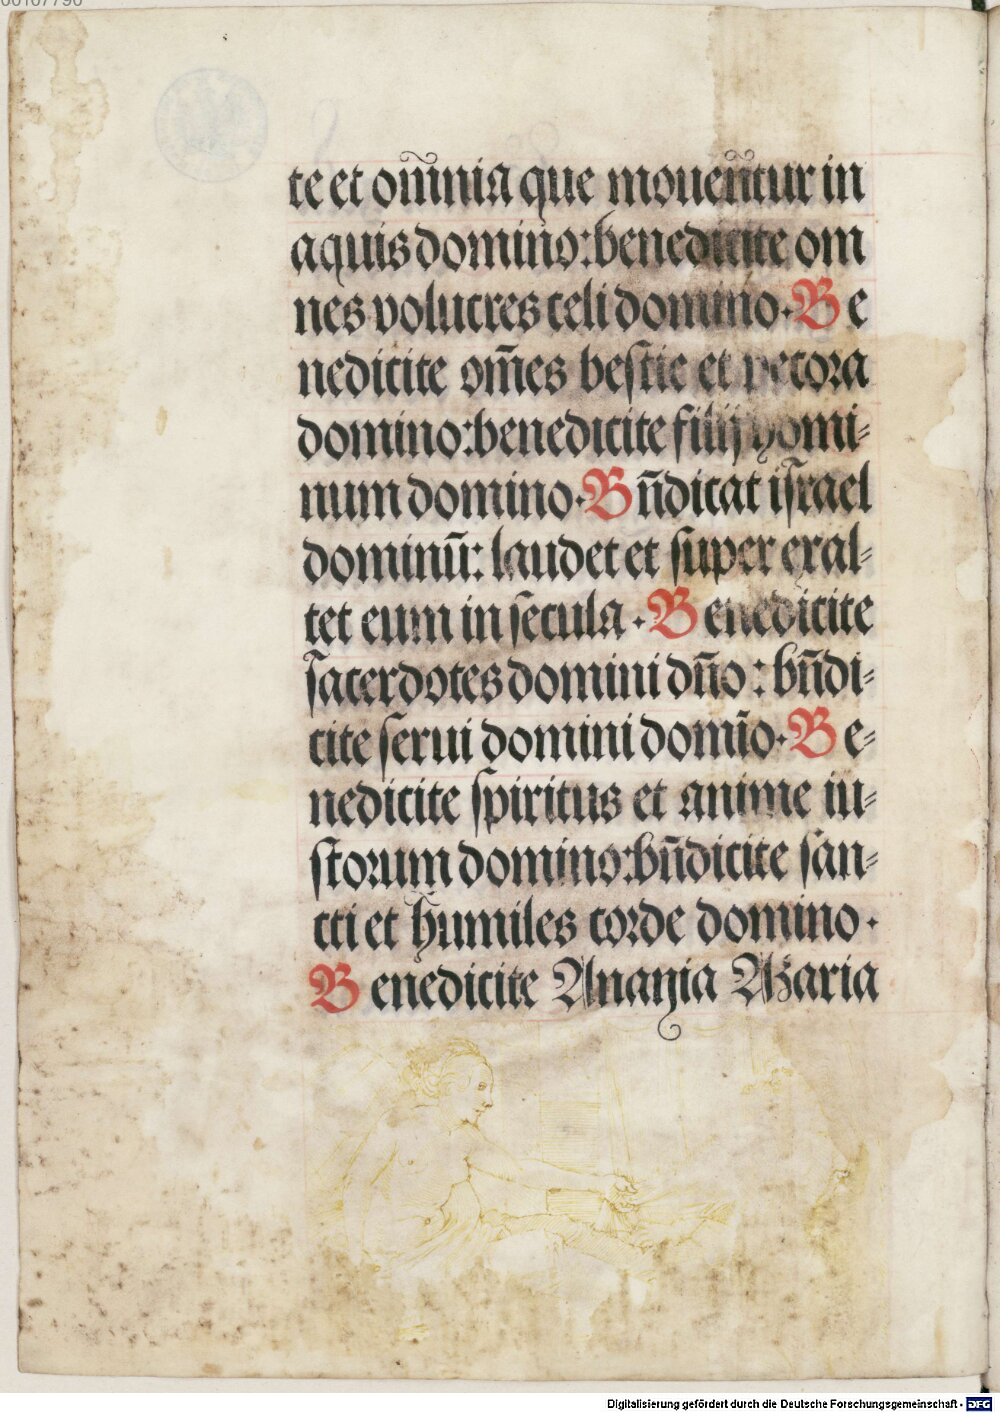 00107790
te et om̄nia que mouen̄tur in
aquis domino: benedicite om
nes volucres celi domino. Be
nedicite om̄es bestie et pecora
domino: benedicite filij homi-
num domino. Bn̄dicat israel
dominū: laudet et super exal-
tet eum in secula. Benedicite
sacerdotes domini dn̄o: bn̄di-
cite serui domini domīo. Be-
nedicite spiritus et anime iu-
storum domino: bn̄dicite san-
cti et humiles corde domino.
Benedicite Ananja Azaria
Digitalisierung gefördert durch die Deutsche Forschungsgemeinschaft - DFG